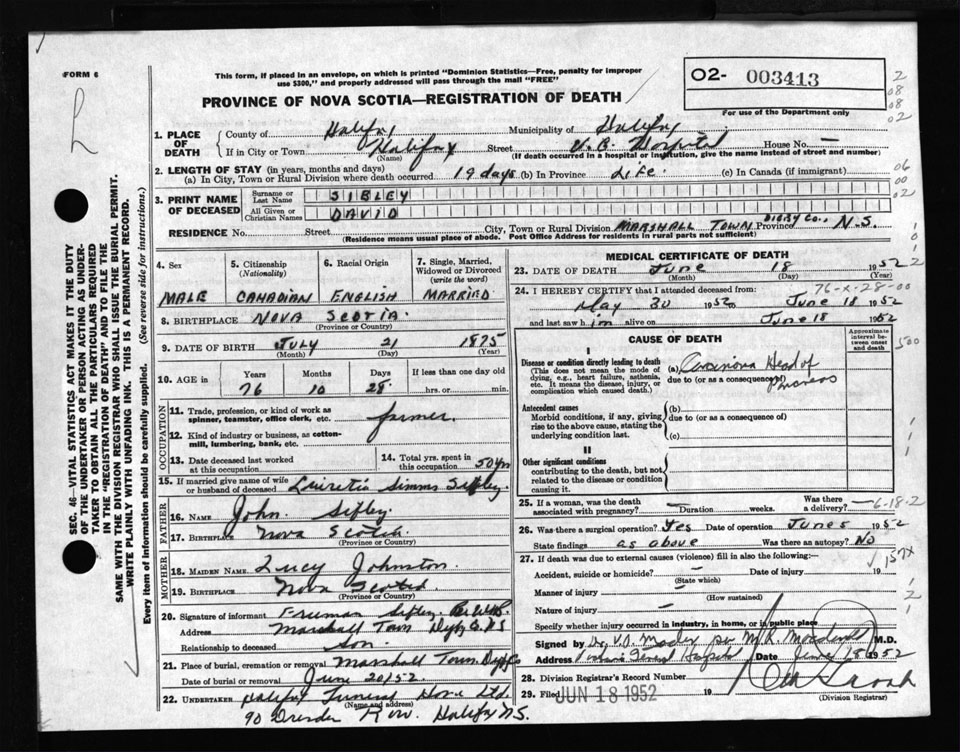 FORM 6
This form, if placed in an envelope, on which is printed "Dominion Statistics—Free, penalty for improper
use $300," and properly addressed will pass through the mail "FREE"
PROVINCE OF NOVA SCOTIA—REGISTRATION OF DEATH
02- 003413
For use of the Department only
1. PLACE OF DEATH
County of Halifax Municipality of Halifax
If in City or Town Halifax Street V.G. Hospital House No. —
(Name) (If death occurred in a hospital or institution, give the name instead of street and number)
2. LENGTH OF STAY (in years, months and days)
(a) In City, Town or Rural Division where death occurred 19 days (b) In Province Life (c) In Canada (if immigrant)
3. PRINT NAME OF DECEASED
Surname or Last Name SIBLEY
All Given or Christian Names DAVID
RESIDENCE No. Street City, Town or Rural Division MARSHALL TOWN DIGBY CO., Province N.S.
(Residence means usual place of abode. Post Office Address for residents in rural parts not sufficient)
4. Sex MALE
5. Citizenship (Nationality) CANADIAN
6. Racial Origin ENGLISH
7. Single, Married, Widowed or Divorced (write the word) MARRIED
8. BIRTHPLACE NOVA SCOTIA
(Province or Country)
9. DATE OF BIRTH JULY 21 1875
(Month) (Day) (Year)
10. AGE in Years Months Days If less than one day old
76 10 28 hrs. or min.
OCCUPATION
11. Trade, profession, or kind of work as spinner, teamster, office clerk, etc. farmer
12. Kind of industry or business, as cotton-mill, lumbering, bank, etc.
13. Date deceased last worked at this occupation
14. Total yrs. spent in this occupation 50 yrs
15. If married give name of wife or husband of deceased Simms
FATHER
16. NAME John
17. BIRTHPLACE Nova Scotia
(Province or Country)
MOTHER
18. MAIDEN NAME Lucy Johnston
19. BIRTHPLACE Nova Scotia
(Province or Country)
20. Signature of informant Freeman
Address Marshall Town Digby Co. N.S
Relationship to deceased son
21. Place of burial, cremation or removal Marshall Town Digby Co
Date of burial or removal June 20/52
22. UNDERTAKER Halifax Funeral Home Ltd.
(Name and address)
90 Dresden Row. Halifax N.S.
MEDICAL CERTIFICATE OF DEATH
23. DATE OF DEATH June 18 1952
(Month) (Day) (Year)
76-X-28-00
24. I HEREBY CERTIFY that I attended deceased from:
May 30 1952 to June 18 1952
and last saw him alive on June 18 1952
CAUSE OF DEATH
Approximate interval between onset and death
I
Disease or condition directly leading to death
(This does not mean the mode of dying, e.g., heart failure, asthenia, etc. It means the disease, injury, or complication which caused death.)
(a) Carcinoma Head of Pancreas
due to (or as a consequence of)
Antecedent causes
Morbid conditions, if any, giving rise to the above cause, stating the underlying condition last.
(b)
due to (or as a consequence of)
(c)
II
Other significant conditions
contributing to the death, but not related to the disease or condition causing it.
25. If a woman, was the death associated with pregnancy? — Duration weeks. Was there a delivery? — 6-18-2
26. Was there a surgical operation? Yes Date of operation June 5 1952
State findings as above Was there an autopsy? No
27. If death was due to external causes (violence) fill in also the following:—
Accident, suicide or homicide? — Date of injury 19
(State which)
157X
Manner of injury —
(How sustained)
Nature of injury —
Specify whether injury occurred in industry, in home, or in public place
Signed by M.D.
Address Date June 18 1952
28. Division Registrar's Record Number
29. Filed JUN 18 1952 19
(Division Registrar)
SEC. 46—VITAL STATISTICS ACT MAKES IT THE DUTY
OF THE UNDERTAKER OR PERSON ACTING AS UNDER-
TAKER TO OBTAIN ALL THE PARTICULARS REQUIRED
IN THE "REGISTRATION OF DEATH" AND TO FILE THE
SAME WITH THE DIVISION REGISTRAR WHO SHALL ISSUE THE BURIAL PERMIT.
WRITE PLAINLY WITH UNFADING INK. THIS IS A PERMANENT RECORD.
Every item of information should be carefully supplied. (See reverse side for instructions.)